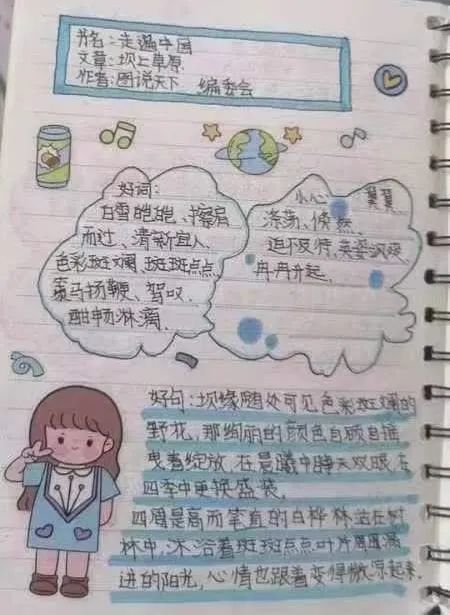 书名：走遍中国
文章：坝上草原
作者：图说天下 编委会
好词：
白雪皑皑、擦肩
而过、清新宜人、
色彩斑斓、斑斑点点、
策马扬鞭、驾驭、
酣畅淋漓
小心翼翼
涤荡、倏然
迫不及待、英姿飒爽
冉冉升起、
好句：坝缘随处可见色彩斑斓的
野花，那绚丽的颜色自顾自摇
曳着绽放，在晨曦中睁大双眼，在
四季中更换盛装。
四周是高而笔直的白桦林，站在树
林中，沐浴着斑斑点点叶片周围漏
进的阳光，心情也跟着变得微凉起来。